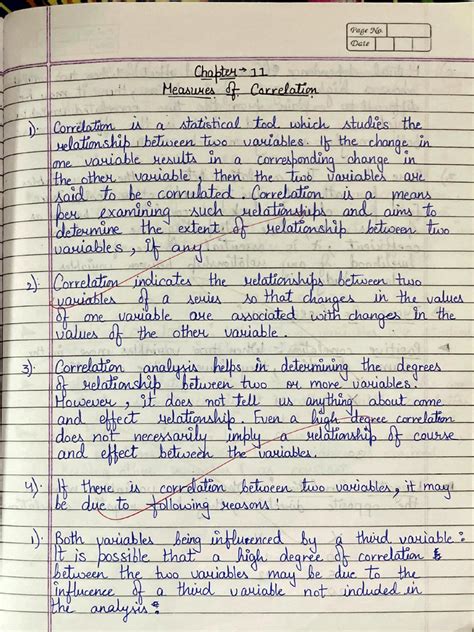 Page No.
Date
Chapter → 11
Measures of Correlation
1). Correlation is a statistical tool which studies the
relationship between two variables. If the change in
one variable results in a corresponding change in
the other variable, then the two variables are
said to be corrulated. Correlation is a means
per examining such relationships and aims to
determine the extent of relationship between two
variables, if any.
2). Correlation indicates the relationships between two
variables of a series so that changes in the values
of one variable are associated with changes in the
values of the other variable.
3). Correlation analysis helps in determining the degrees
of relationship between two or more variables.
However, it does not tell us anything about come
and effect relationship. Even a high degree correlation
does not necessarily imply a relationship of course
and effect between the variables.
4). If there is correlation between two variables, it may
be due to following reasons:
1). Both variables being influenced by a third variable:
It is possible that a high degree of correlation
between the two variables may be due to the
influence of a third variable not included in
the analysis.